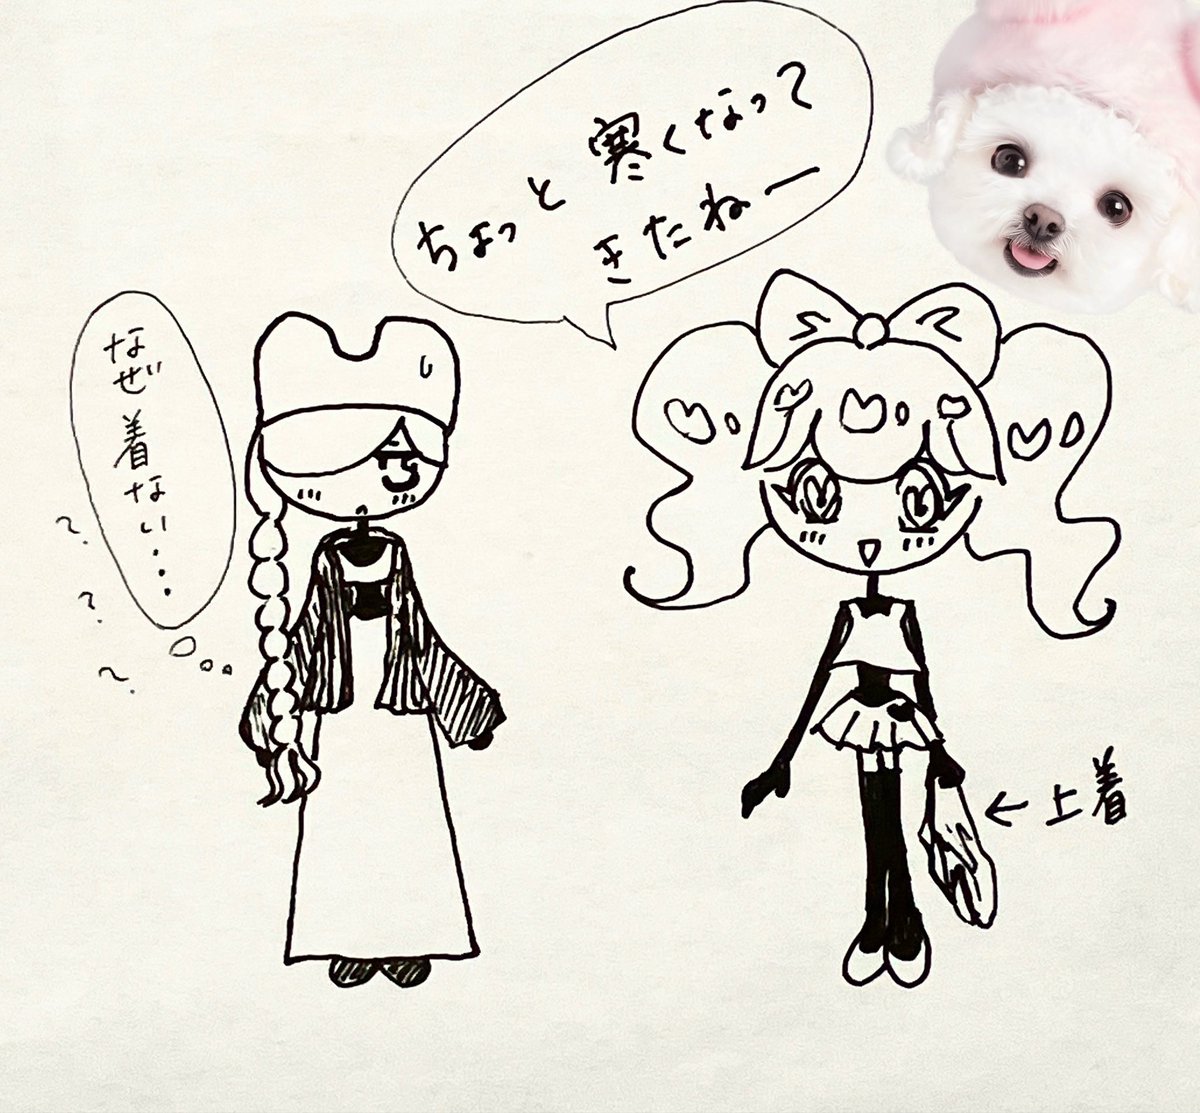 ちょっと寒くなって
きたねー
なぜ着ない・・・・
?
?
?
←上着